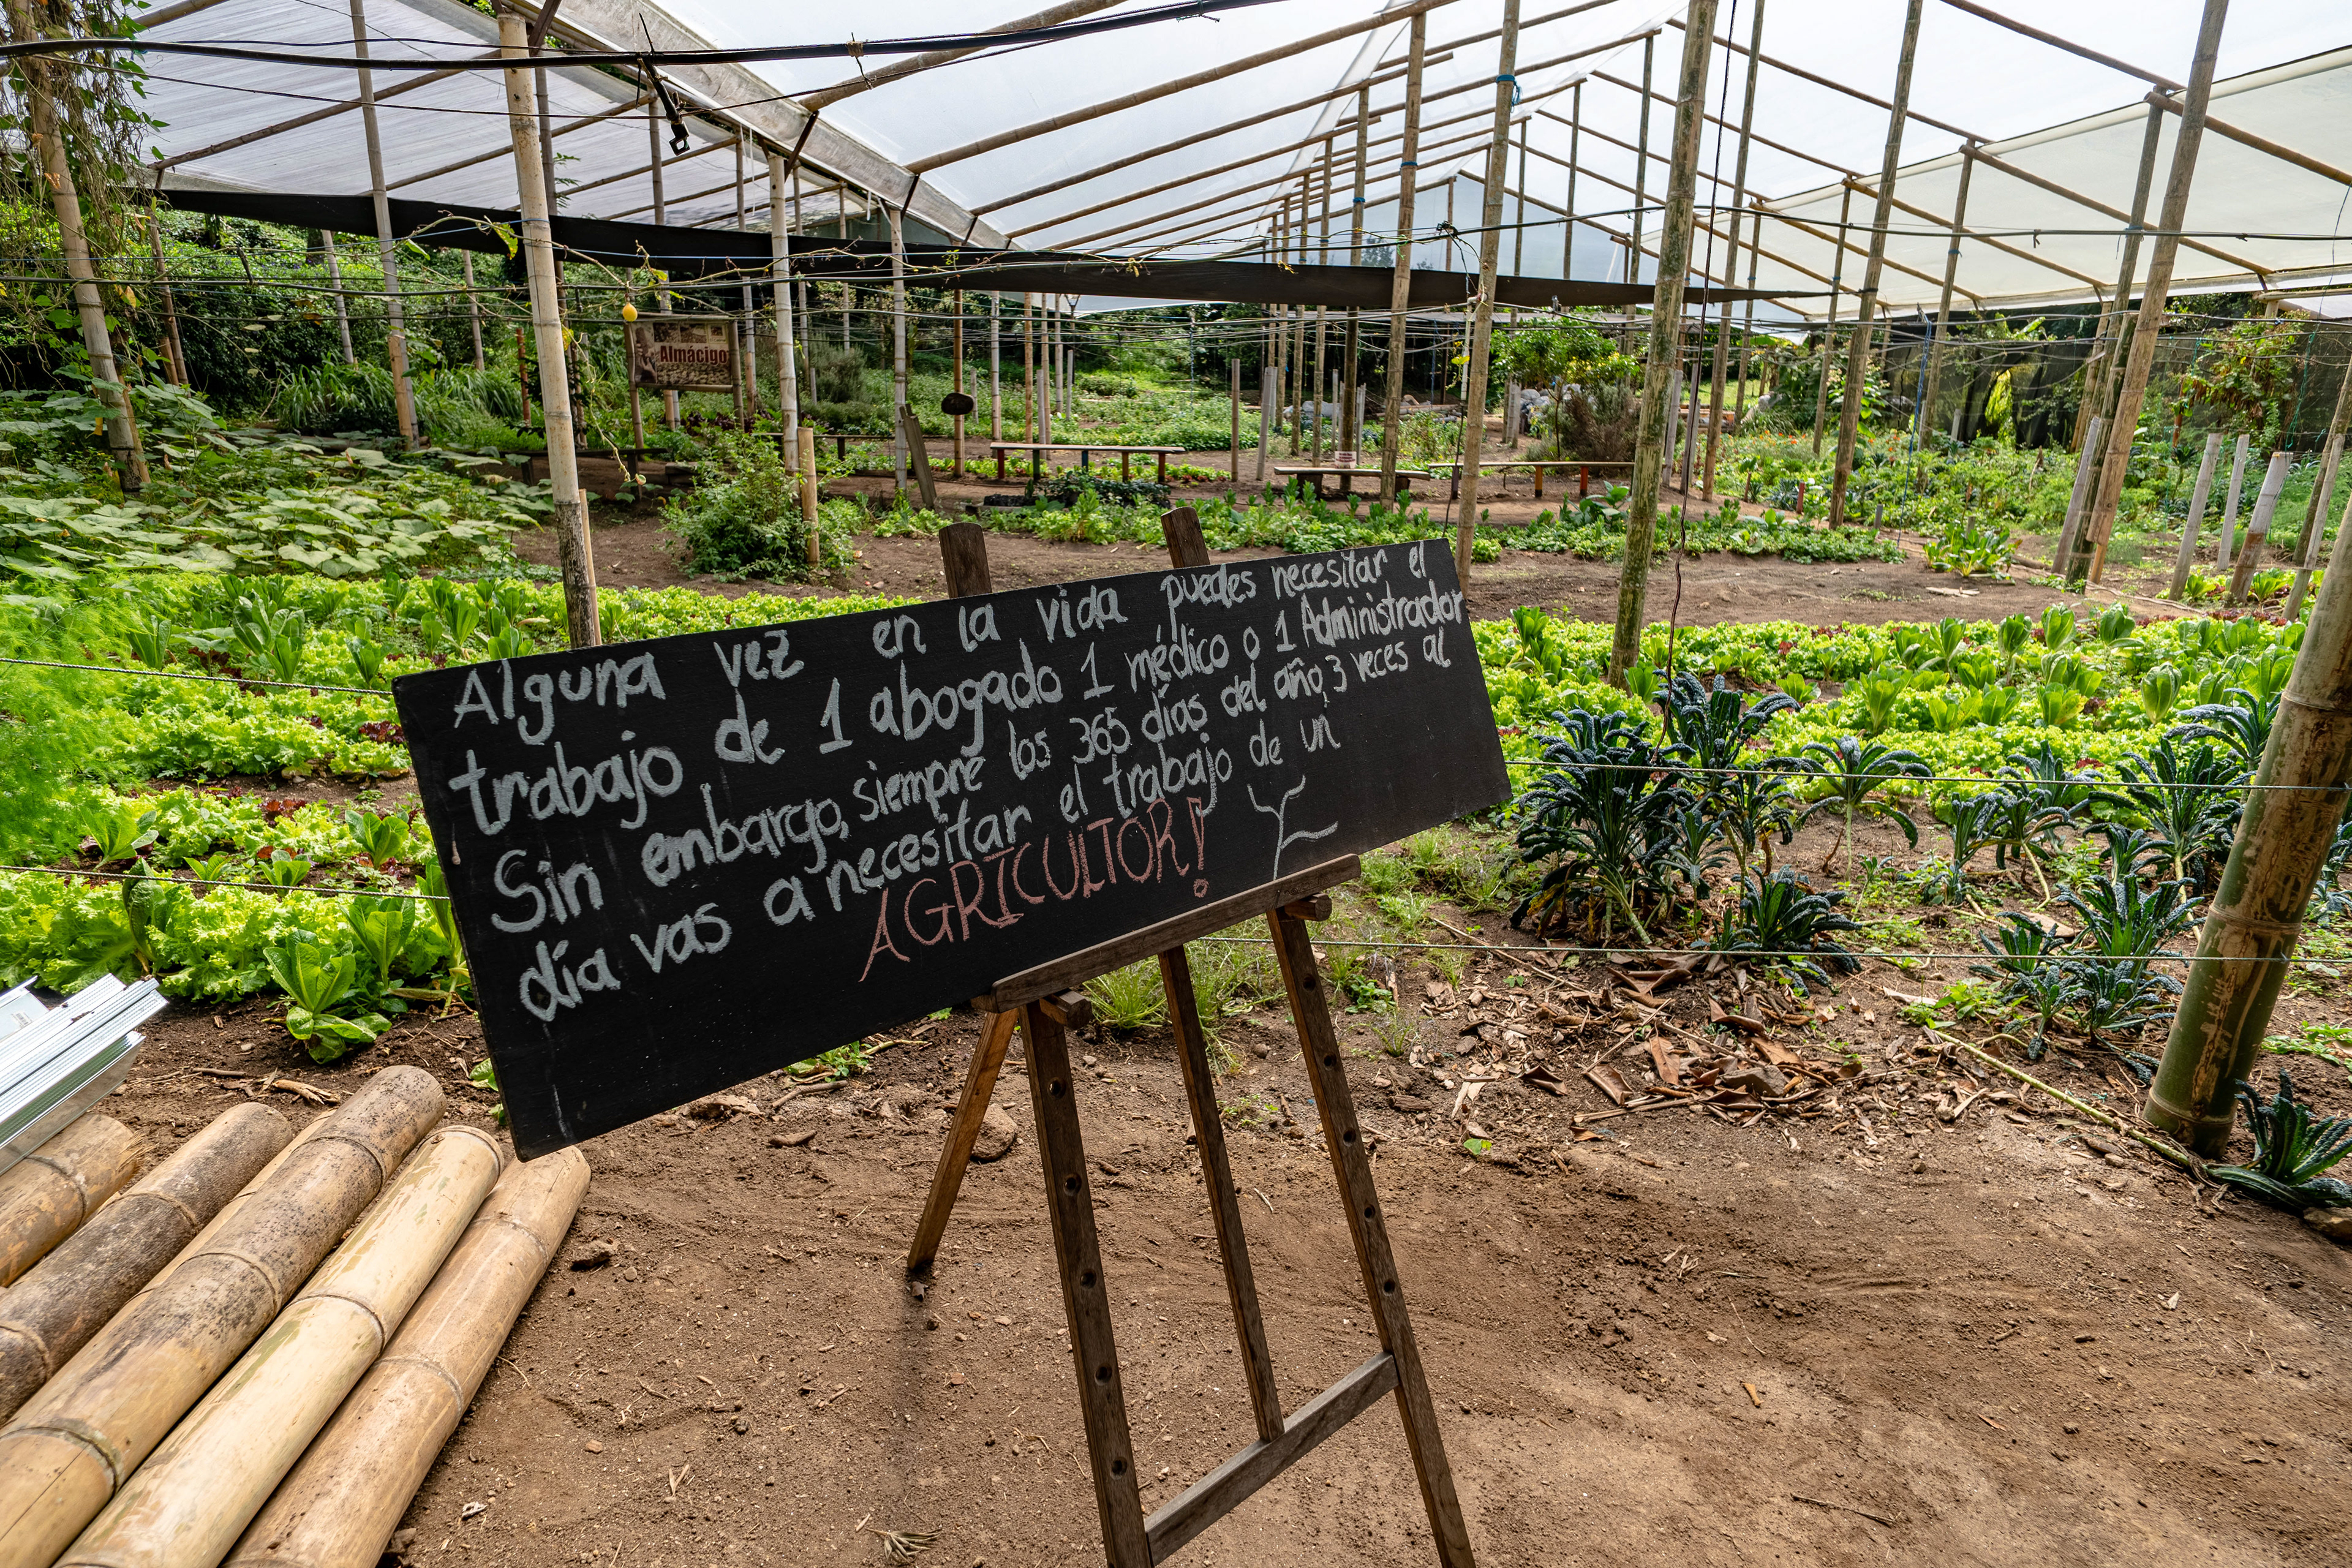 Almácigo
Alguna vez en la vida puedes necesitar el
trabajo de 1 abogado 1 médico o 1 Administrador
Sin embargo, siempre los 365 días del año, 3 veces al
día vas a necesitar el trabajo de un
AGRICULTOR!